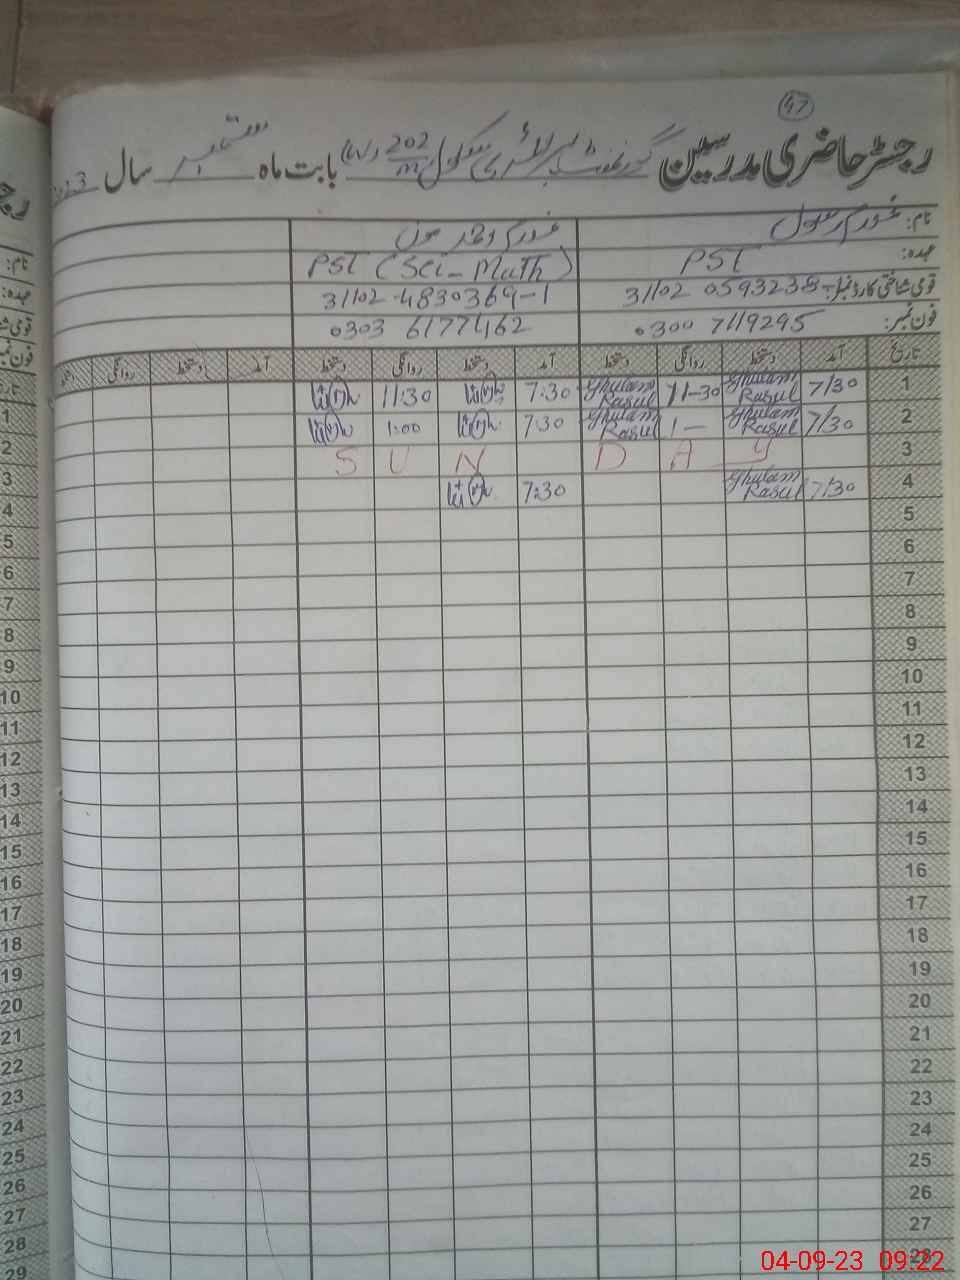 47
رجسٹر حاضری مدرسین گورنمنٹ پرائمری سکول 202/m (W) بابت ماہ ستمبر سال
نام: غلام رسول
عہدہ: PST PST (Sci-Math)
قومی شناختی کارڈ نمبر: 31102 0593238 31102-4830369-1
فون نمبر: 0300 7119295 0303 6177462
تاریخ آمد دستخط روانگی دستخط آمد دستخط روانگی دستخط آمد دستخط روانگی دستخط
1 7/30 Ghulam Rasul 11-30 Ghulam Rasul 7:30 11:30
2 7/30 Ghulam Rasul 1- Ghulam Rasul 7:30 1:00
3 S U N D A Y
4 7/30 Ghulam Rasul 7:30
5
6
7
8
9
10
11
12
13
14
15
16
17
18
19
20
21
22
23
24
25
26
27
28
04-09-23 09:22